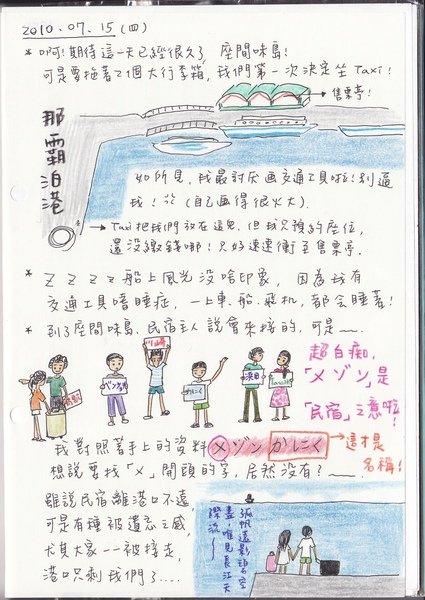 2010.07.15(四)
* 啊!期待這一天已經很久了,座間味島!
可是要拖著2個大行李箱,我們第一次決定坐Taxi!
售票亭!
那霸泊港
如所見,我最討厭画交通工具啦!別逼
我!(自己画得很火大).
Taxi把我們放在這兒.但我只預約座位,
還沒繳錢哪!只好速速衝至售票亭.
* ZZZZ船上風光沒啥印象,因為我有
交通工具嗜睡症,一上車.船.飛机,都会睡著!
* 到了座間味島.民宿主人說會來接的.可是
超白痴,
「メゾン」是
「民宿」之意啦!
我對照著手上的資料メゾンかにく
這才是名稱!
想說要找「メ」開頭的字,居然沒有?
雖說民宿離港口不遠,
可是有種被遺忘之感,
尤其大家一一被接走,
港口只剩我們了....
孤帆遠影碧空
盡,唯見長江天
際流~